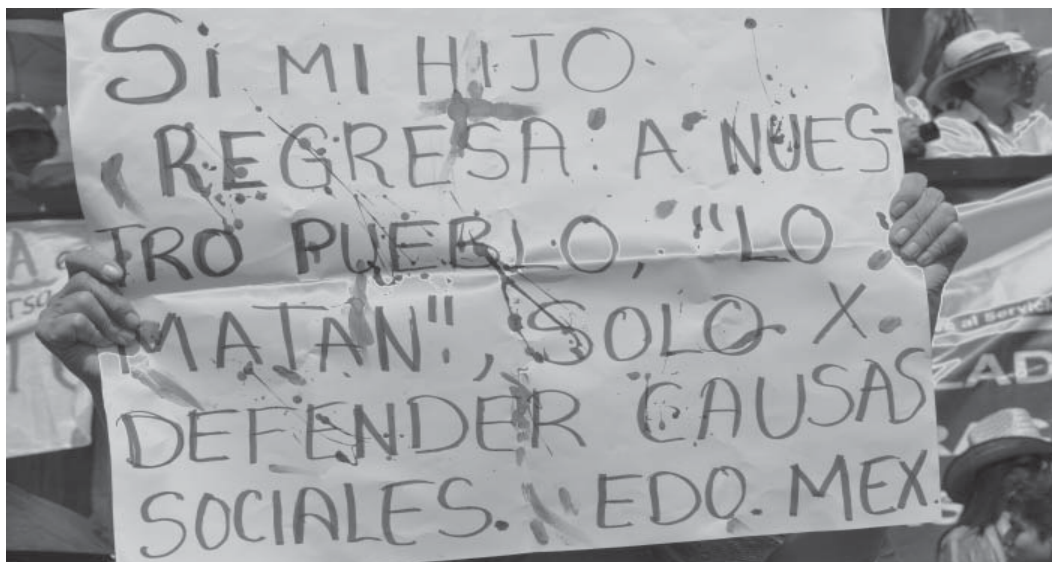 SI MI HIJO
REGRESA A NUES-
TRO PUEBLO, "LO
MATAN", SOLO X.
DEFENDER CAUSAS
SOCIALES. EDO. MEX.
al Servic
ZAD